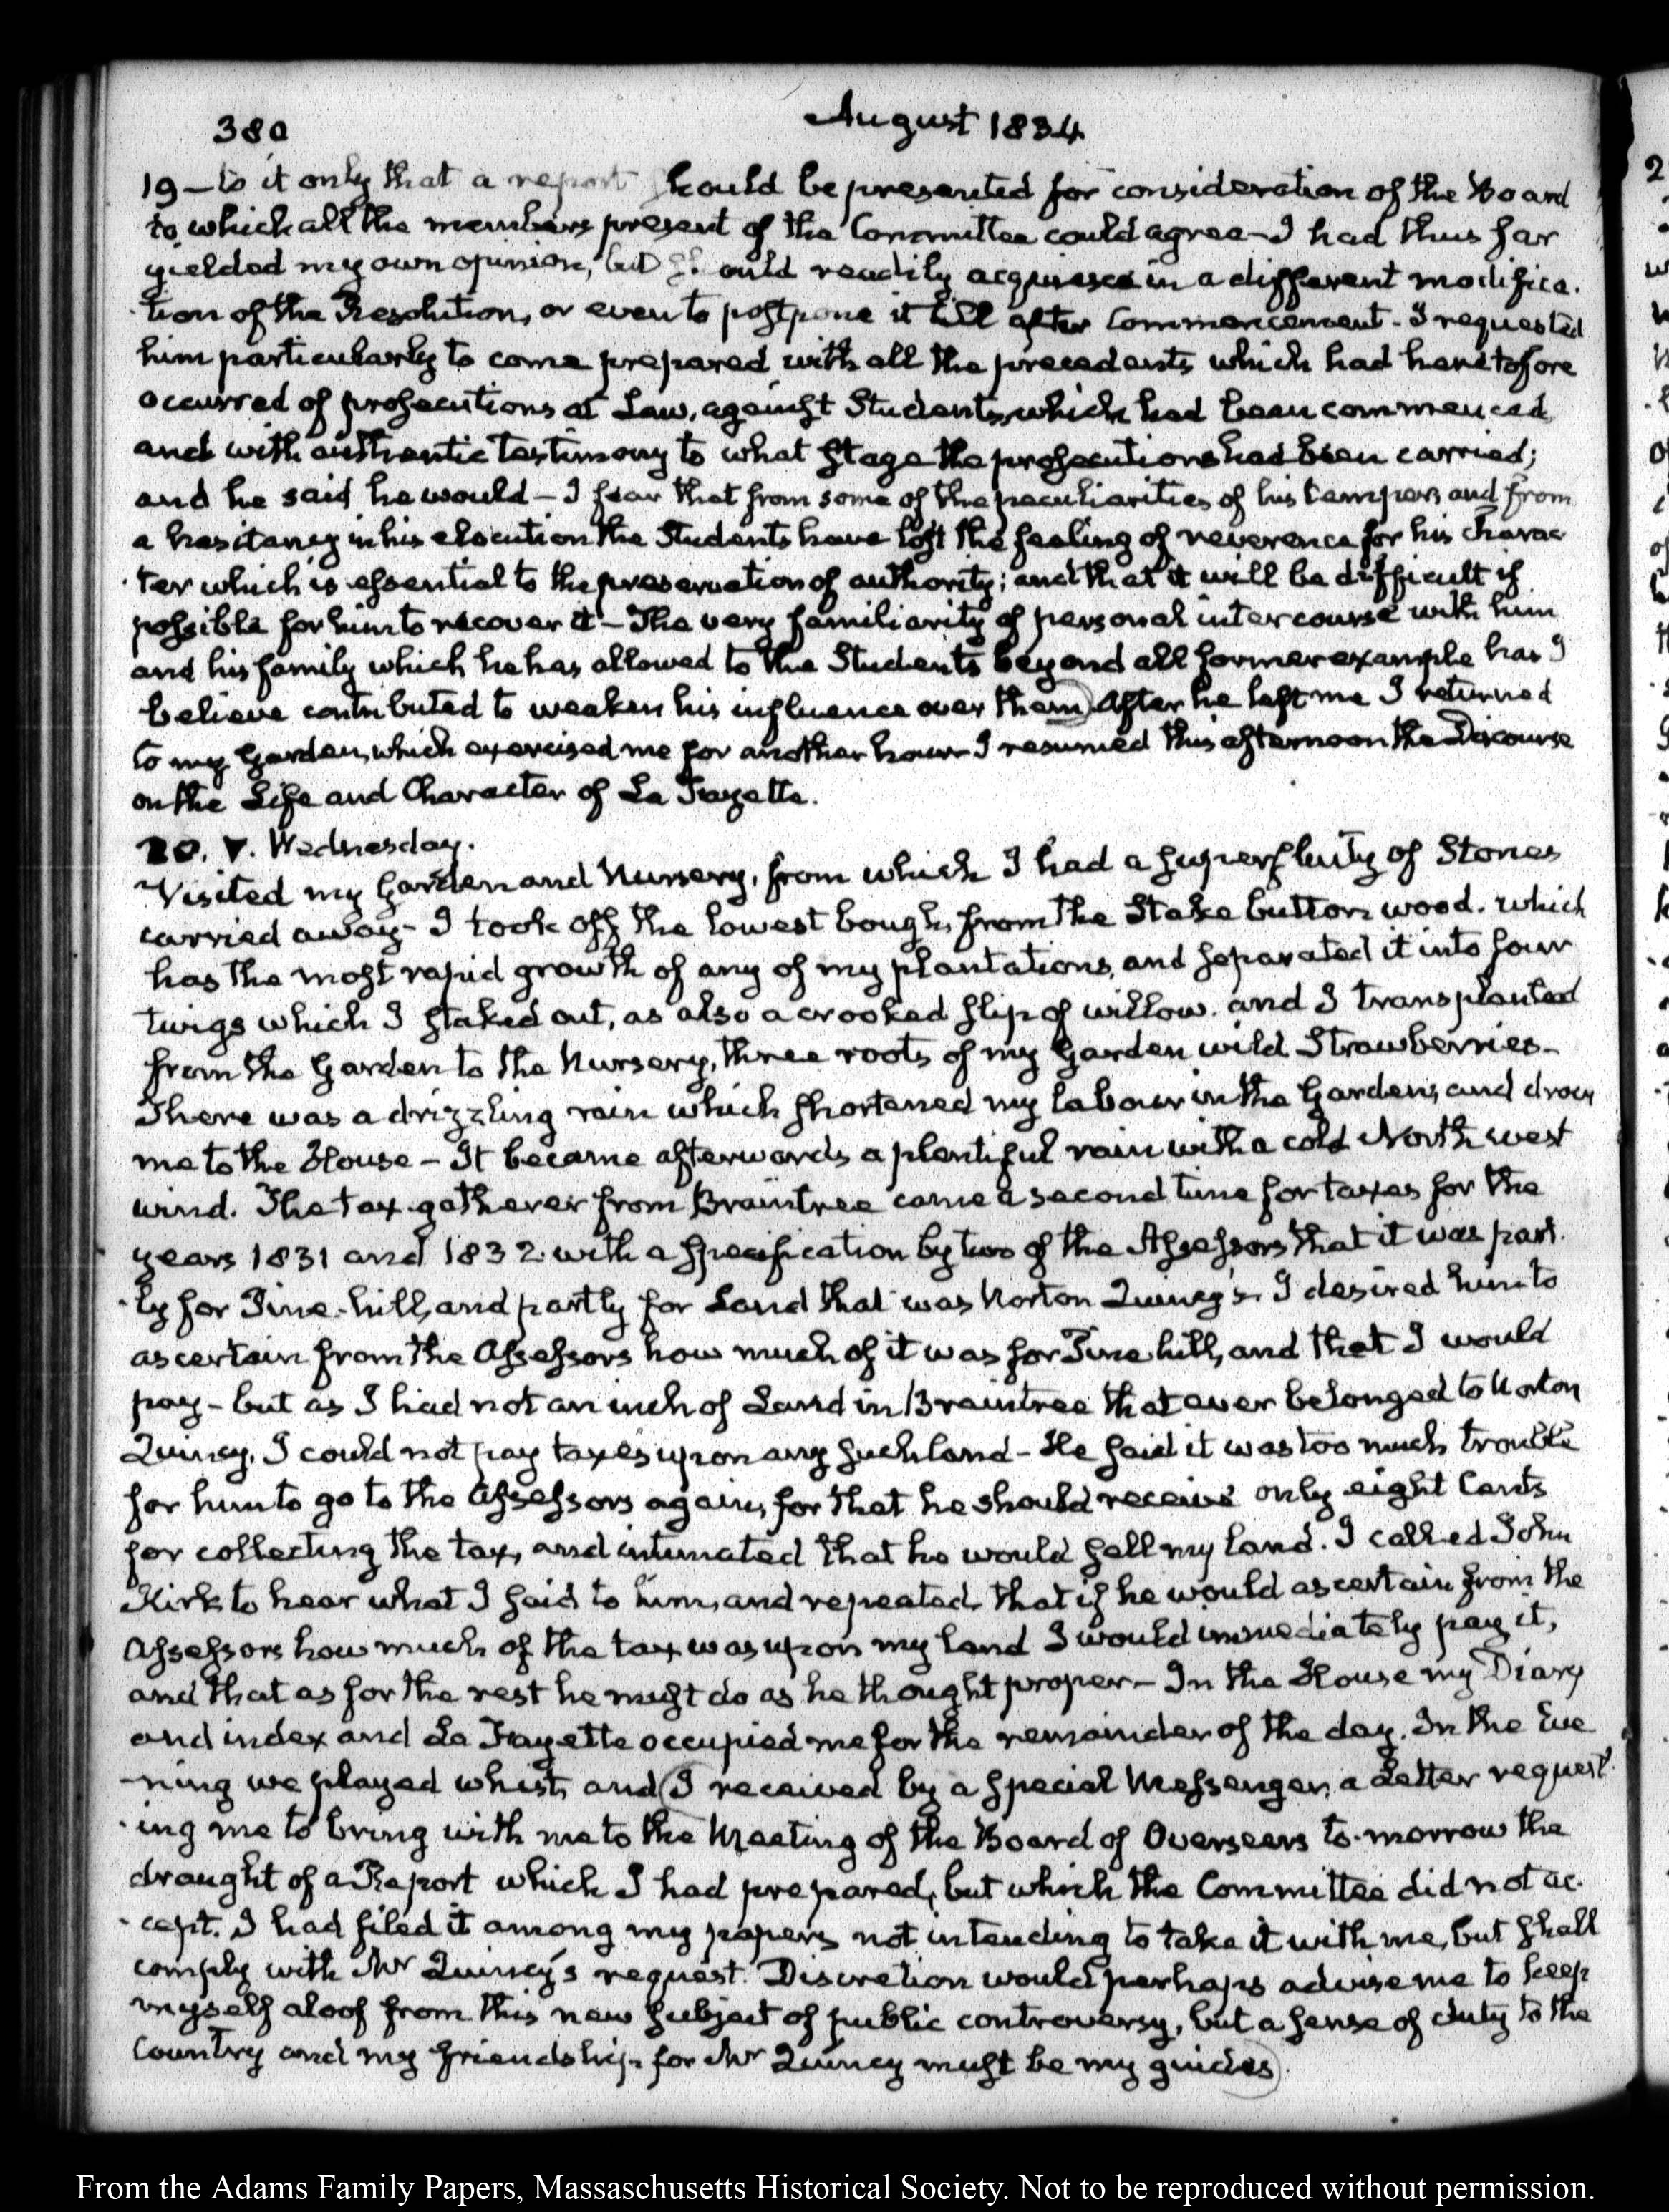 380
August 1834
19 — to it only that a report should be presented for consideration of the Board
to which all the members present of the Committee could agree — I had thus far
yielded my own opinion, but should readily acquiesce in a different modifica-
-tion of the Resolution, or even to postpone it till after Commencement - I requested
him particularly to come prepared with all the precedents which had heretofore
occurred of prosecutions at Law, against Students, which had been commenced
and with authentic testimony to what stage the prosecutions had been carried;
and he said he would — I fear that from some of the peculiarities of his temper, and from
a hesitancy in his elocution the Students have lost the feeling of reverence for his charac-
-ter which is essential to the preservation of authority; and that it will be difficult if
possible for him to recover it — The very familiarity of personal intercourse with him
and his family which he has allowed to the Students beyond all former example has I
believe contributed to weaken his influence over them) After he left me I returned
to my Garden, which exercised me for another hour — I resumed this afternoon the Discourse
on the Life and Character of La Fayette.
20. V. Wednesday.
Visited my Garden and Nursery, from which I had a superfluity of Stones
carried away — I took off the lowest bough, from the Stake button wood. which
has the most rapid growth of any of my plantations, and separated it into four
twigs which I staked out, as also a crooked slip of willow. and I transplanted
from the Garden to the Nursery, three roots of my Garden wild Strawberries —
There was a drizzling rain which shortened my labour in the Garden, and drove
me to the House — It became afterwards a plentiful rain with a cold North west
wind. The tax-gatherer from Braintree came a second time for taxes for the
years 1831 and 1832. with a specification by two of the Assessors that it was part-
-ly for Pine-hill, and partly for Land that was Norton Quincy's. I desired him to
ascertain from the Assessors how much of it was for Pine hill, and that I would
pay — but as I had not an inch of Land in Braintree that ever belonged to Norton
Quincy, I could not pay taxes upon any such land — He said it was too much trouble
for him to go to the Assessors again, for that he should receive only eight Cents
for collecting the tax, and intimated that he would sell my land. I called John
Kirk to hear what I said to him, and repeated that if he would ascertain from the
Assessors how much of the tax was upon my land I would immediately pay it,
and that as for the rest he might do as he thought proper — In the House my Diary
and index and La Fayette occupied me for the remainder of the day. In the Eve
-ning we played whist, and (I received by a special Messenger, a Letter request-
-ing me to bring with me to the Meeting of the Board of Overseers to-morrow the
draught of a Report which I had prepared, but which the Committee did not ac-
-cept. I had filed it among my papers, not intending to take it with me, but shall
comply with Mr Quincy's request. Discretion would perhaps advise me to keep
myself aloof from this new subject of public controversy, but a sense of duty to the
Country and my friendship for Mr Quincy must be my guides).
From the Adams Family Papers, Massachusetts Historical Society. Not to be reproduced without permission.